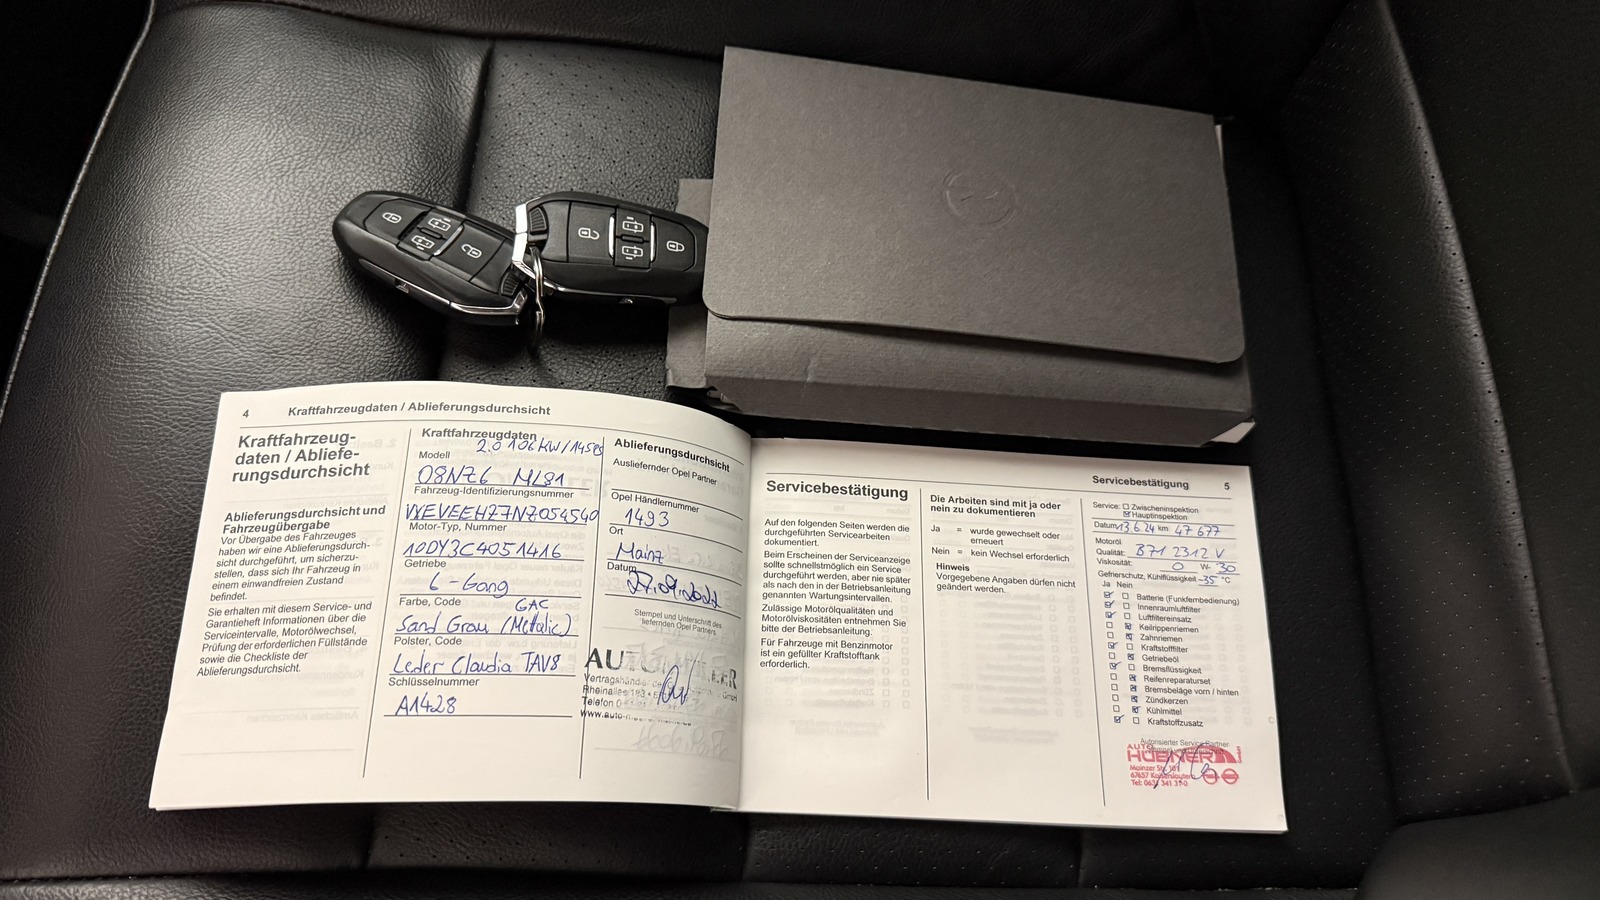 4
Kraftfahrzeugdaten / Ablieferungsdurchsicht
Kraftfahrzeug-
daten / Abliefe-
rungsdurchsicht
Ablieferungsdurchsicht und
Fahrzeugübergabe
Vor Übergabe des Fahrzeuges
haben wir eine Ablieferungsdurch-
sicht durchgeführt, um sicherzu-
stellen, dass sich Ihr Fahrzeug in
einem einwandfreien Zustand
befindet.
Sie erhalten mit diesem Service- und
Garantieheft Informationen über die
Serviceintervalle, Motorölwechsel,
Prüfung der erforderlichen Füllstände
sowie die Checkliste der
Ablieferungsdurchsicht.
Kraftfahrzeugdaten
2.0 106 kW/145PS
Modell
08NZ6 ML81
Fahrzeug-Identifizierungsnummer
VXEVEEHZ7NZ054540
Motor-Typ, Nummer
10DY3C4051416
Getriebe
6-Gang
Farbe, Code
GAC
Sand Grau (Metallic)
Polster, Code
Leder Claudia TAV8
Schlüsselnummer
A1428
Ablieferungsdurchsicht
Ausliefernder Opel Partner
Opel Händlernummer
1493
Ort
Mainz
Datum
27.09.2022
Stempel und Unterschrift des
liefernden Opel Partners
AUTO
Vertragshändler
Rheinallee 183
Telefon
Servicebestätigung
5
Servicebestätigung
Auf den folgenden Seiten werden die
durchgeführten Servicearbeiten
dokumentiert.
Beim Erscheinen der Serviceanzeige
sollte schnellstmöglich ein Service
durchgeführt werden, aber nie später
als nach den in der Betriebsanleitung
genannten Wartungsintervallen.
Zulässige Motorölqualitäten und
Motorölviskositäten entnehmen Sie
bitte der Betriebsanleitung.
Für Fahrzeuge mit Benzinmotor
ist ein gefüllter Kraftstofftank
erforderlich.
Die Arbeiten sind mit ja oder
nein zu dokumentieren
Ja = wurde gewechselt oder
erneuert
Nein = kein Wechsel erforderlich
Hinweis
Vorgegebene Angaben dürfen nicht
geändert werden.
Service: Zwischeninspektion
Hauptinspektion
Datum 13.6.24 km 47 677
Motoröl
Qualität: B71 2312 V
Viskosität: 0 W- 30
Gefrierschutz, Kühlflüssigkeit -35 °C
Ja Nein
Batterie (Funkfernbedienung)
Innenraumluftfilter
Luftfiltereinsatz
Keilrippenriemen
Zahnriemen
Kraftstofffilter
Getriebeöl
Bremsflüssigkeit
Reifenreparaturset
Bremsbeläge vorn / hinten
Zündkerzen
Kühlmittel
Kraftstoffzusatz
Autorisierter Service Partner
AUTO
HÜBNER
GmbH
Mainzer Str. 101
67657 Kaiserslautern